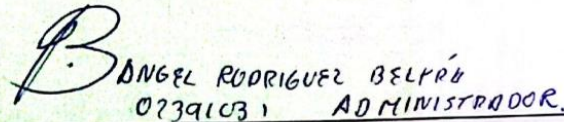 ANGEL RODRIGUEZ BELTRÁN
02391031 ADMINISTRADOR.